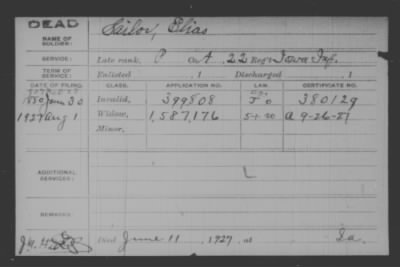 DEAD
NAME OF SOLDIER:
Sailor, Elias
SERVICE:
Late rank, P Co. A, 22 Reg't Iowa Inf.
TERM OF SERVICE:
Enlisted , 1 Discharged , 1
DATE OF FILING. CLASS. APPLICATION NO. LAW. CERTIFICATE NO.
1880 June 30 Invalid, 399508 380129
1927 Aug 1 Widow, 1,587,176 5-1-20 A 9-26-27
Minor,
ADDITIONAL SERVICES:
REMARKS:
Died June 11, 1927, at Ia.